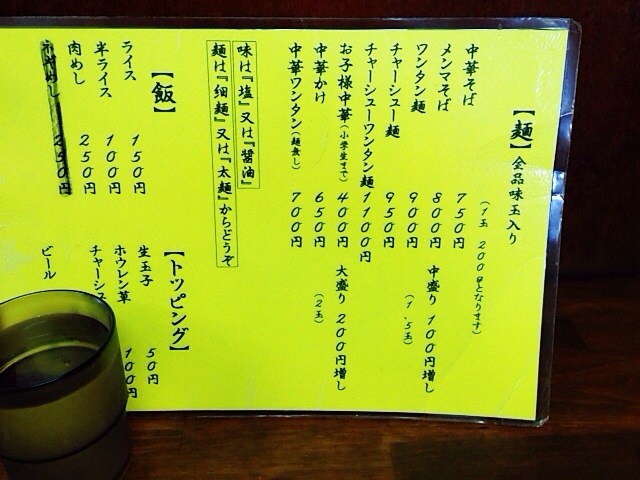 【麺】全品味玉入り
(1玉 200gとなります)
中華そば 750円
メンマそば 800円
ワンタン麺 900円
チャーシュー麺 950円
チャーシューワンタン麺 1100円
お子様中華(小学生まで) 400円
中華かけ 650円
中華ワンタン(麺無し) 700円
中盛り 100円増し
(1.5玉)
大盛り 200円増し
(2玉)
味は『塩』又は『醤油』
麺は『細麺』又は『太麺』からどうぞ
【飯】
ライス 150円
半ライス 100円
肉めし 250円
250円
【トッピング】
生玉子 50円
ホウレン草 100円
チャーシ
ビール